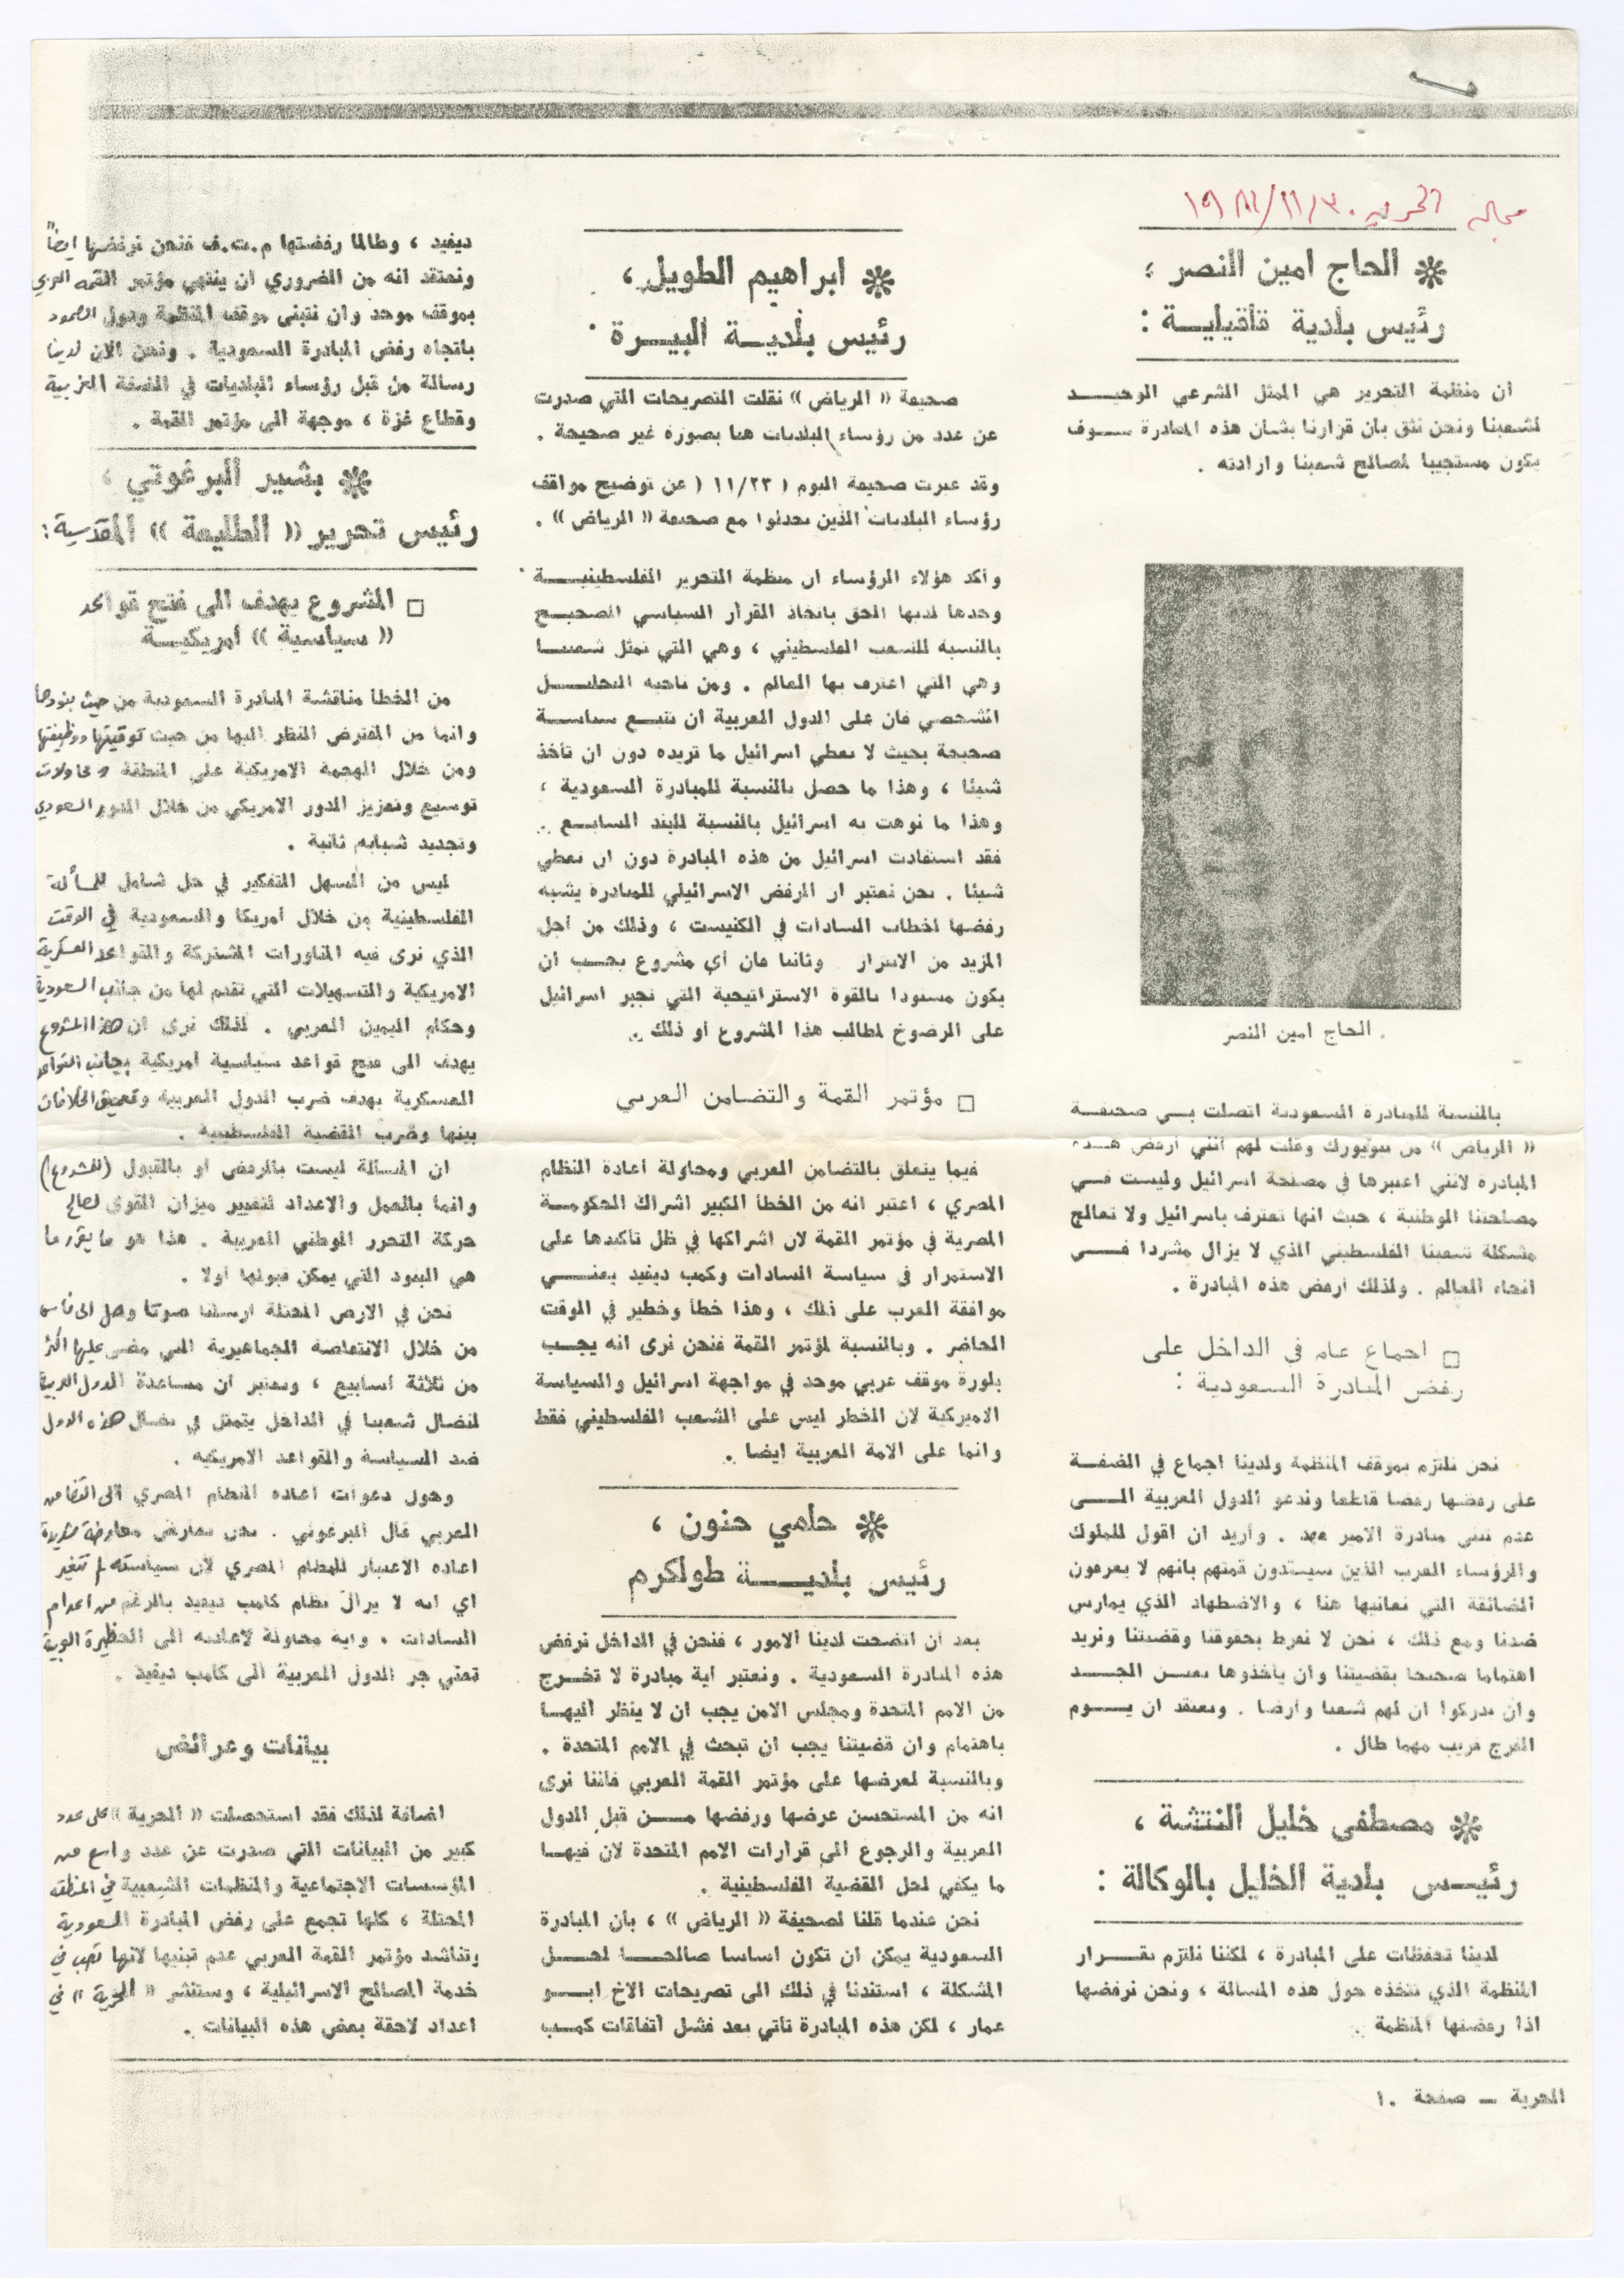 مجلة الحرية ١٩٨١/١١/٣٠
الحاج امين النصر ؛
رئيس بلدية قلقيليـــة :
ان منظمة التحرير هي الممثل الشرعي الوحيـــد
لشعبنا ونحن نثق بان قرارنا بشان هذه المبادرة ســـوف
يكون مستجيبا لصالح شعبنا وارادته .
الحاج امين النصر .
بالنسبة للمبادرة السعودية اتصلت بـــي صحيفـــة
« الرياض » من نيويورك وقلت لهم انني ارفض هـــذه
المبادرة لانني اعتبرها في مصلحة اسرائيل وليست فـــي
مصلحتنا الوطنية ، حيث انها تعترف باسرائيل ولا تعالج
مشكلة شعبنا الفلسطيني الذي لا يزال مشردا فـــي
انحاء العالم . ولذلك ارفض هذه المبادرة .
□ اجماع عام في الداخل على
رفض المبادرة السعودية :
نحن نلتزم بموقف المنظمة ولدينا اجماع في الضفـــة
على رفضها رفضا قاطعا وندعو الدول العربية الـــى
عدم تبني مبادرة الامير فهد . واريد ان اقول للملوك
والرؤساء العرب الذين سيبتدون قمتهم بانهم لا يعرفون
الضائقة التي نعانيها هنا ، والاضطهاد الذي يمارس
ضدنا ومع ذلك ، نحن لا نفرط بحقوقنا وقضيتنا ونريد
اهتماما صحيحا بقضيتنا وان ياخذوها بعيـــن الجـــد
وان يدركوا ان لهم شعبا وارضا . ونعتقد ان يـــوم
الفرج قريب مهما طال .
مصطفى خليل النتشة ،
رئيـــس بلدية الخليل بالوكالة :
لدينا تحفظات على المبادرة ، لكننا نلتزم بقـــرار
المنظمة الذي تتخذه حول هذه المسالة ، ونحن نرفضها
اذا رفضتها المنظمة .
ابراهيم الطويل ،
رئيس بلديـــة البيـــرة
صحيفة « الرياض » نقلت التصريحات التي صدرت
عن عدد من رؤساء البلديات هنا بصورة غير صحيحة .
وقد عبرت صحيفة اليوم ( ١١/٢٣ ( عن توضيح مواقف
رؤساء البلديات الذين تحدثوا مع صحيفة « الرياض » .
واكد هؤلاء الرؤساء ان منظمة التحرير الفلسطينيـــة
وحدها لديها الحق باتخاذ القرار السياسي الصحيـــح
بالنسبة للشعب الفلسطيني ، وهي التي تمثل شعبنـــا
وهي التي اعترف بها العالم . ومن ناحية التحليـــل
الشخصي فان على الدول العربية ان تتبـــع سياســـة
صحيحة بحيث لا تعطي اسرائيل ما تريده دون ان تأخذ
شيئا ، وهذا ما حصل بالنسبة للمبادرة السعودية ،
وهذا ما نوهت به اسرائيل بالنسبة للبند السابـــع .
فقد استفادت اسرائيل من هذه المبادرة دون ان تعطي
شيئا . نحن نعتبر ان الرفض الاسرائيلي للمبادرة يشبه
رفضها لخطاب السادات في الكنيست ، وذلك من اجل
المزيد من الابتزاز . وثانيا فان أي مشروع يجـــب ان
يكون مسنودا بالقوة الاستراتيجية التي تجبر اسرائيل
على الرضوخ لمطالب هذا المشروع او ذلك .
□ مؤتمر القمة والتضامن العربي
فيما يتعلق بالتضامن العربي ومحاولة اعادة النظام
المصري ، اعتبر انه من الخطأ الكبير اشراك الحكومـــة
المصرية في مؤتمر القمة لان اشراكها في ظل تأكيدها على
الاستمرار في سياسة السادات وكمب ديفيد يعنـــي
موافقة العرب على ذلك ، وهذا خطأ وخطير في الوقت
الحاضر . وبالنسبة لمؤتمر القمة فنحن نرى انه يجـــب
بلورة موقف عربي موحد في مواجهة اسرائيل والسياسة
الاميركية لان الخطر ليس على الشعب الفلسطيني فقط
وانما على الامة العربية ايضا .
حلمي حنون ،
رئيس بلديـــــة طولكرم
بعد ان اتضحت لدينا الامور ، فنحن في الداخل نرفض
هذه المبادرة السعودية . ونعتبر اية مبادرة لا تخـــرج
من الامم المتحدة ومجلس الامن يجب ان لا ينظر اليهـــا
باهتمام وان قضيتنا يجب ان تبحث في الامم المتحدة .
وبالنسبة لعرضها على مؤتمر القمة العربي فاننا نرى
انه من المستحسن عرضها ورفضها مـــن قبل الدول
العربية والرجوع الى قرارات الامم المتحدة لان فيهـــا
ما يكفي لحل القضية الفلسطينية .
نحن عندما قلنا لصحيفة « الرياض » ، بأن المبادرة
السعودية يمكن ان تكون اساسا صالحـــا لحـــل
المشكلة ، استندنا في ذلك الى تصريحات الاخ ابـــو
عمار ، لكن هذه المبادرة تأتي بعد فشل اتفاقات كمـــب
ديفيد ، وطالما رفضتها م.ت.ف فنحن نرفضها ايضاً
ونعتقد انه من الضروري ان ينتهي مؤتمر القمة العربي
بموقف موحد وان نتبنى موقف المنظمة ودول الصمود
باتجاه رفض المبادرة السعودية . ونحن الان لدينا
رسالة من قبل رؤساء البلديات في الضفة الغربية
وقطاع غزة ، موجهة الى مؤتمر القمة .
بشير البرغوتي ،
رئيس تحرير « الطليعة » المقدسية :
□ المشروع يهدف الى فتح قواعد
« سياسية » أمريكيـــة
من الخطأ مناقشة المبادرة السعودية من حيث بنودها
وانما من المفترض النظر اليها من حيث توقيتها ووظيفتها
ومن خلال الهجمة الامريكية على المنطقة ومحاولات
توسيع وتعزيز الدور الامريكي من خلال الدور السعودي
وتجديد شبابه ثانية .
ليس من السهل التفكير في حل شامل للمسألة
الفلسطينية من خلال أمريكا والسعودية في الوقت
الذي نرى فيه المناورات المشتركة والقواعد العسكرية
الامريكية والتسهيلات التي تقدم لها من جانب السعودية
وحكام اليمين العربي . لذلك نرى ان هذا المشروع
يهدف الى فتح قواعد سياسية امريكية بجانب القواعد
العسكرية بهدف ضرب الدول العربية وتعميق الخلافات
بينها وضرب القضية الفلسطينية .
ان المسالة ليست بالرفض او بالقبول (للمشروع)
وانما بالعمل والاعداد لتغيير ميزان القوى لصالح
حركة التحرر الوطني العربية . هذا هو ما يقرر ما
هي البنود التي يمكن قبولها اولا .
نحن في الارض المحتلة ارسلنا صوتا وصل الى فاس
من خلال الانتفاضة الجماهيرية التي مضى عليها اكثر
من ثلاثة اسابيع ، ونعتبر ان مساعدة الدول العربية
لنضال شعبنا في الداخل يتمثل في نضال هذه الدول
ضد السياسة والقواعد الامريكية .
وحول دعوات اعادة النظام المصري الى التضامن
العربي قال البرغوتي . نحن نعارض معارضة شديدة
اعادة الاعتبار للنظام المصري لان سياسته لم تتغير
اي انه لا يزال نظام كامب ديفيد بالرغم من اعدام
السادات . واية محاولة لاعادته الى الحظيرة العربية
تعني جر الدول العربية الى كامب ديفيد .
بيانات وعرائض
اضافة لذلك فقد استحصلت « الحرية » على عدد
كبير من البيانات التي صدرت عن عدد واسع من
المؤسسات الاجتماعية والمنظمات الشعبية في المنطقة
المحتلة ، كلها تجمع على رفض المبادرة السعودية
وتناشد مؤتمر القمة العربي عدم تبنيها لانها تصب في
خدمة المصالح الاسرائيلية ، وستنشر « الحرية » في
اعداد لاحقة بعض هذه البيانات .
الحرية — صفحة ١٠